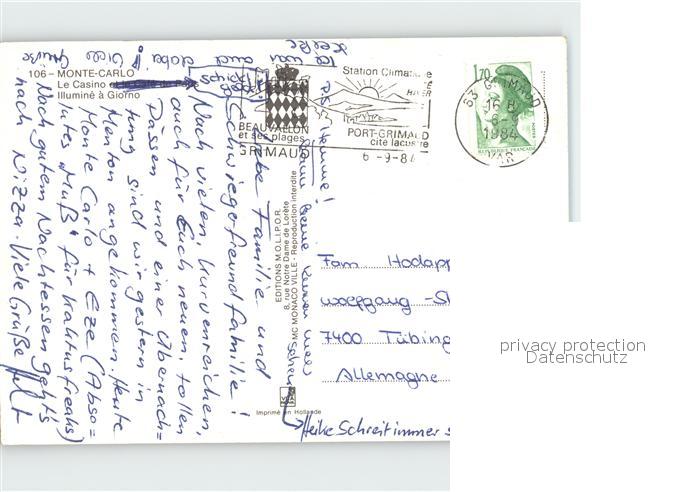 106 – MONTE-CARLO
Le Casino et le Café de Paris
Illuminé à Giorno
Liebe Familie und
Schwiegerfreundfamilie!
Nach vielen, kurvenreichen,
auch für Euch neuen, tollen
Pässen und einer Übernach=
tung sind wir gestern in
Menton angekommen. Heute
Monte Carlo + Eze (Abso=
lutes "Muß" für Kaktusfreaks)
Nach gutem Nachtessen geht's
nach Nizza. Viele Grüße
EDITIONS M.O.L.I.P.O.R.
8, rue Notre Dame de Lorète
MC MONACO VILLE - Reproduction Interdite
Imprimé en Hollande
Station Climatique
HIVER
BEAUVALLON
et ses plages
GRIMAUD
PORT-GRIMAUD
cité lacustre
6-9-84
83 GRIMAUD
16 H
6-9
1984
VAR
1,70
REPUBLIQUE FRANCAISE
Fam Hodapp
Wolfgang-St
7400 Tübing
Allemagne
Heike Schreit immer s
privacy protection
Datenschutz